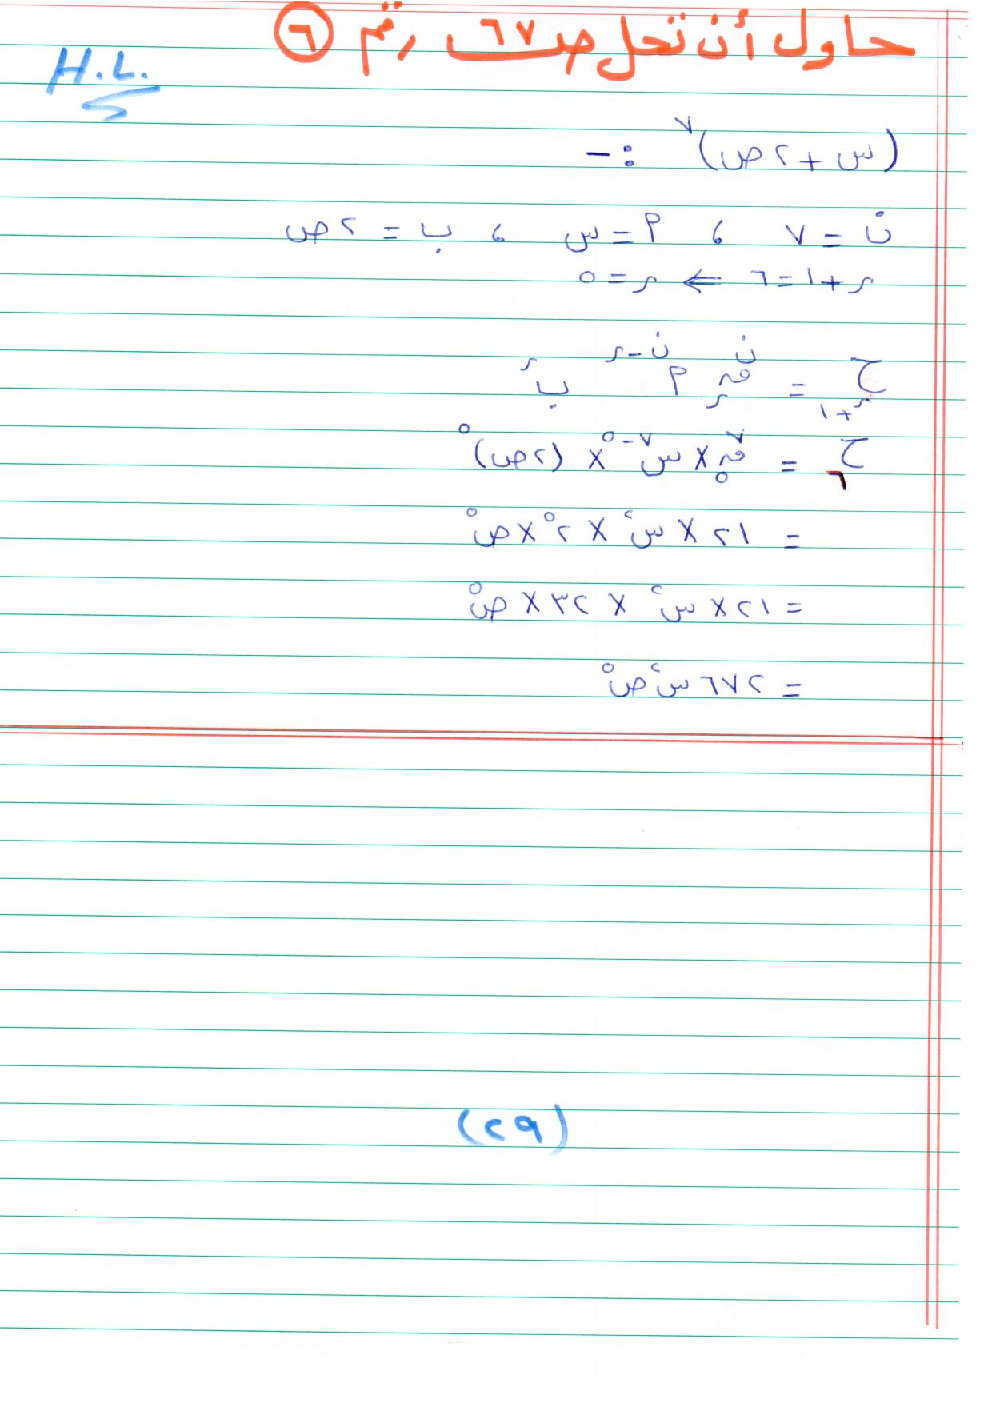 حاول أن تحل ص ٦٧ رقم ٦
H.L.
(س + ٢ص)^٧ :-
ن = ٧ ، أ = س ، ب = ٢ص
ر + ١ = ٦ ⇐ ر = ٥
ح_{ر+١} = ^نق_ر أ^{ن-ر} ب^ر
ح_٦ = ^٧ق_٥ × س^{٧-٥} × (٢ص)^٥
= ٢١ × س^٢ × ٢^٥ × ص^٥
= ٢١ × س^٢ × ٣٢ × ص^٥
= ٦٧٢ س^٢ ص^٥
(٢٩)